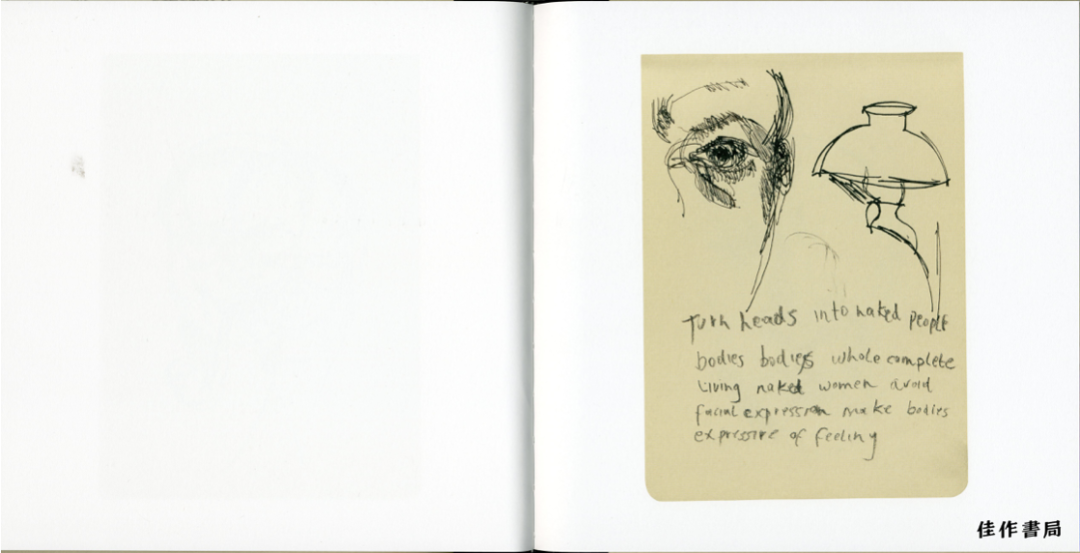 Turn heads into naked people
bodies bodies whole complete
living naked women avoid
facial expression make bodies
expressive of feeling
佳作書局